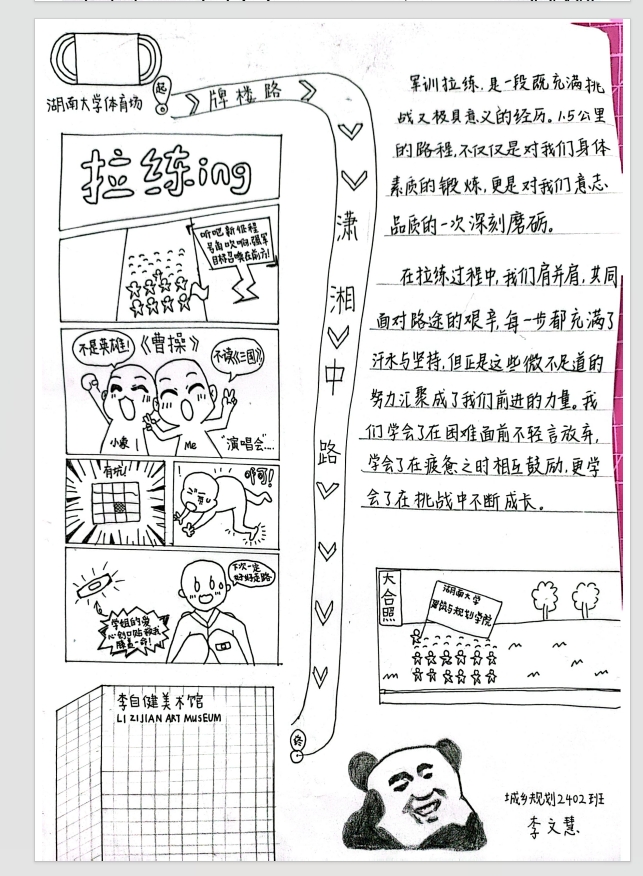 湖南大学体育场
起
牌楼路
潇湘中路
终
拉练ing
听吧新征程
号角吹响,强军
目标召唤在前方!
不是英雄!
《曹操》
不读《三国》!
小象
Me
"演唱会"....
有坑!
哎呵!
下次一定
好好走路
学姐的爱
心创口贴救我
膝盖一命!
李自健美术馆
LI ZIJIAN ART MUSEUM
军训拉练,是一段既充满挑
战又极具意义的经历。1.5公里
的路程,不仅仅是对我们身体
素质的锻炼,更是对我们意志
品质的一次深刻磨砺。
在拉练过程中,我们肩并肩,共同
面对路途的艰辛,每一步都充满了
汗水与坚持,但正是这些微不足道的
努力汇聚成了我们前进的力量。我
们学会了在困难面前不轻言放弃,
学会了在疲惫之时相互鼓励,更学
会了在挑战中不断成长。
大合照
湖南大学
建筑与规划学院
城乡规划2402班
李文慧